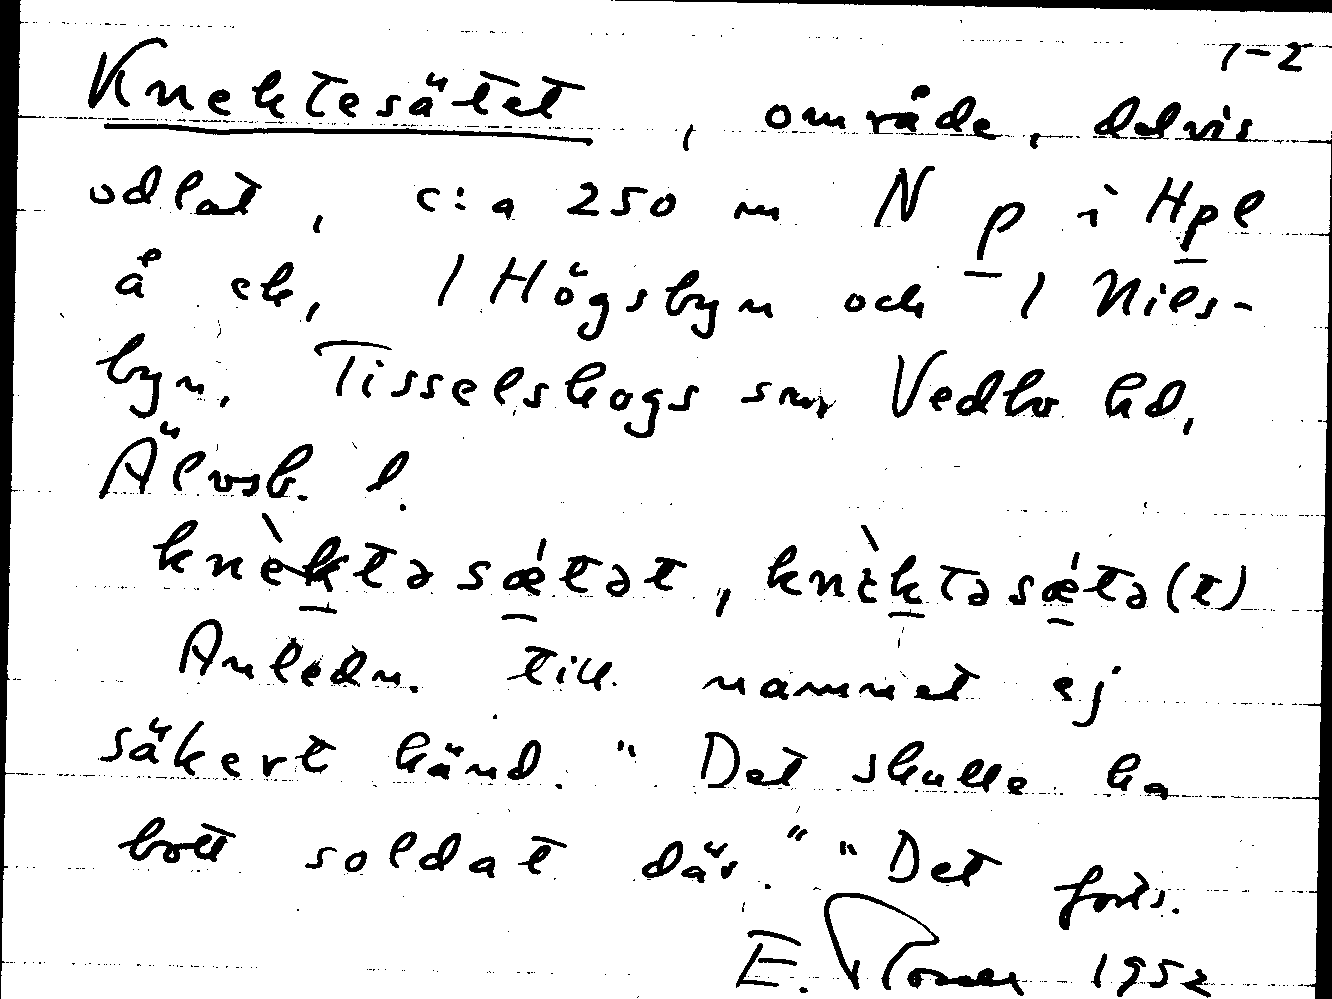 1-2
Knektesätet, område, delvis
odlat, c:a 250 m N p i Hpl
å ek, 1 Högsbyn och 1 Niels-
byn, Tisselskogs sn, Vedbo hd,
Älvsb. l.
knὲktəsǽtət, knὲktəsǽtə(t)
Anledn. till namnet ej
säkert känd. "Det skulle ha
bott soldat där." "Det forts.
E. 1952